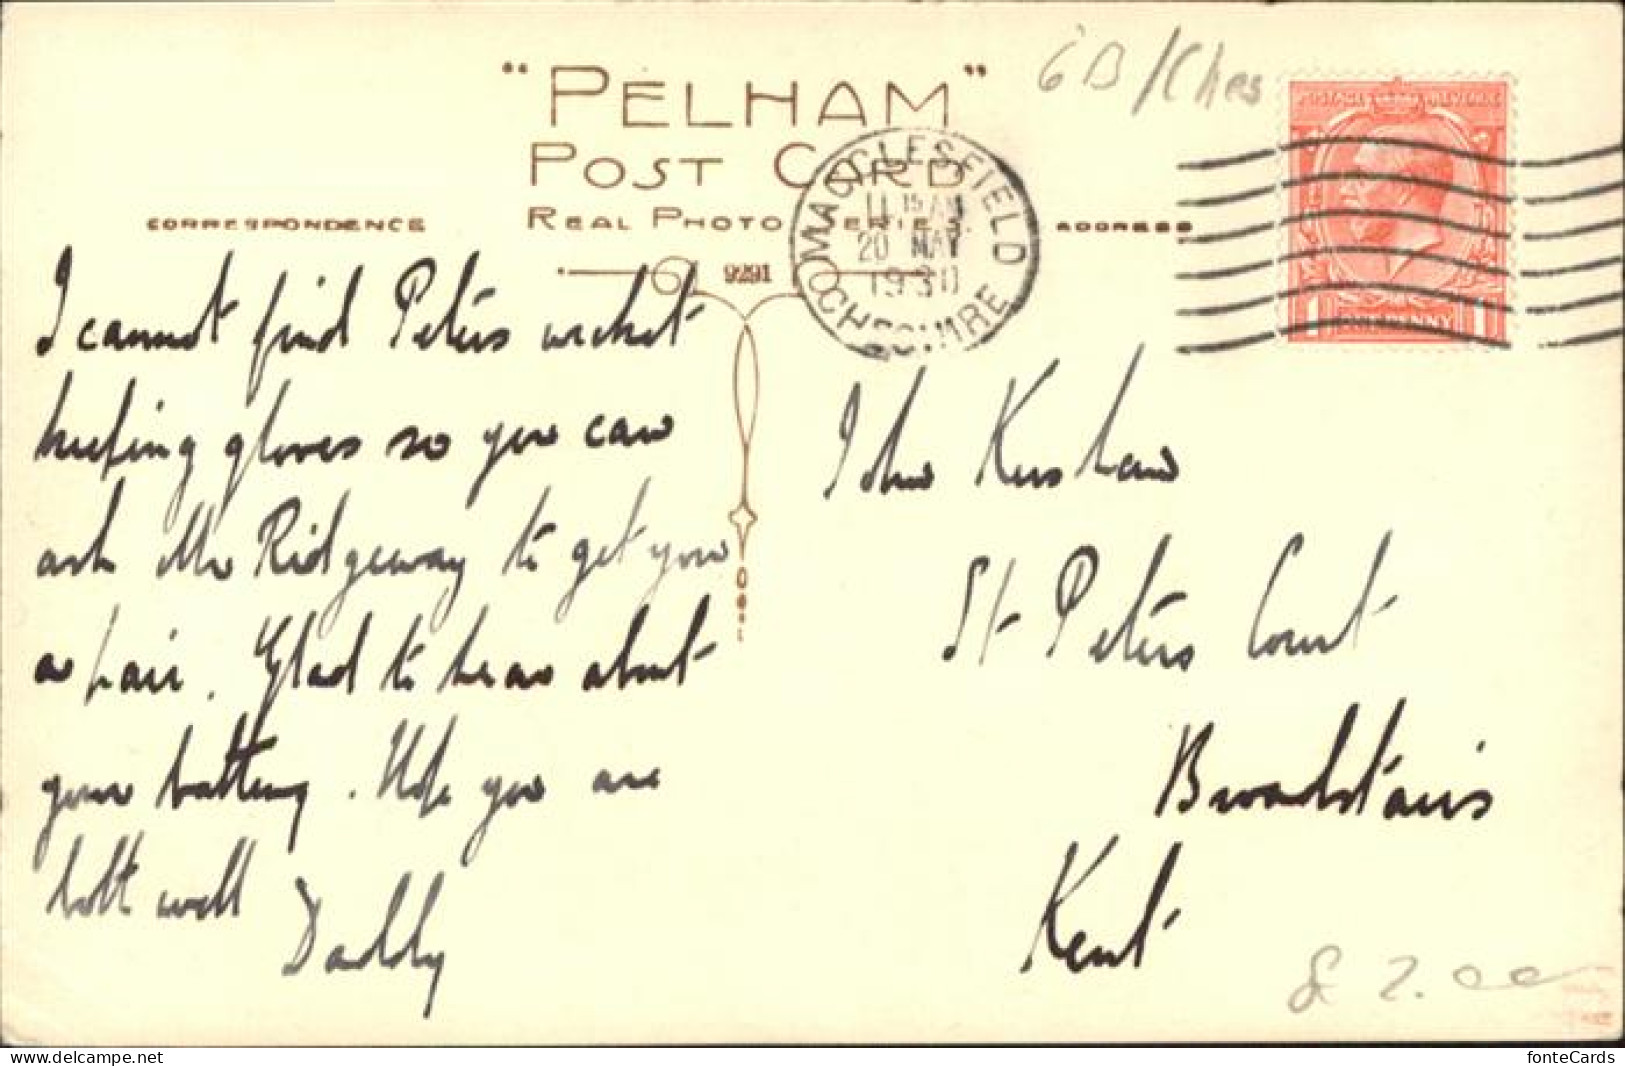 "PELHAM"
POST CARD
CORRESPONDENCE
REAL PHOTO SERIES.
ADDRESS
9291
6B/Ches
MACCLESFIELD
11 15 AM
20 MAY
1930
CHESHIRE
POSTAGE REVENUE
1 ONE PENNY 1
I cannot find Peters wicket
keeping gloves so you can
ask Mr Ridgeway to get you
a pair. Glad to hear about
your batting. Hope you are
both well
Daddy
John Kershaw
St Peters Court
Broadstairs
Kent
£ 2.00
fonteCards
www.delcampe.net